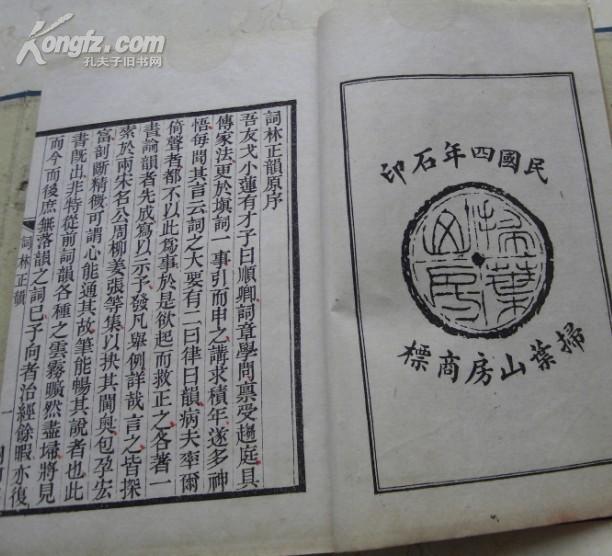 Kongfz.com
孔夫子旧书网
民國四年石印
掃葉山房
掃葉山房商標
詞林正韻原序
吾友戈小蓮有才子曰順卿詞章學問禀受趨庭具
傳家法更於填詞一事引而申之講求積年遂多神
悟每聞其言云詞之大要有二曰律曰韻病夫率爾
倚聲者都不以此爲事於是欲起而救正之各著一
書論韻者先成寫以示予發凡舉例詳哉言之皆探
索於兩宋名公周柳姜張等集以抉其閫奥包孕宏
富剖斷精微可謂心能通其故筆能暢其說者也此
書既出非特從前詞韻各種之雲霧曠然盡埽將見
而今而後庶無落韻之詞已予向者治經餘暇亦復
詞林正韻
一